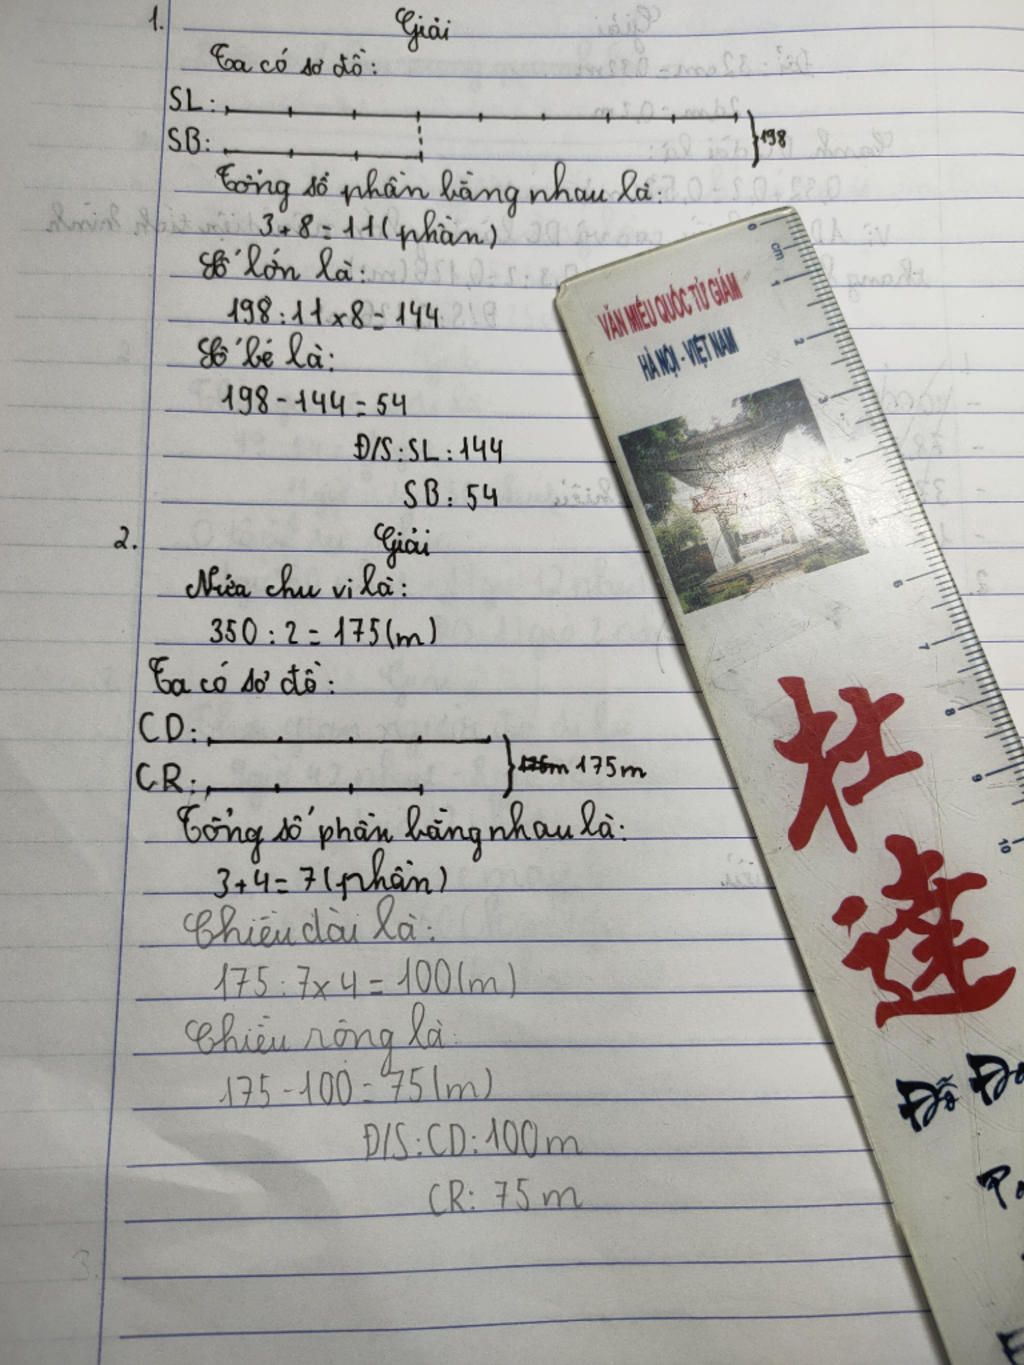 1.
Giải
Ta có sơ đồ:
SL:
SB:
198
Tổng số phần bằng nhau là:
3+8=11(phần)
Số lớn là:
198:11×8=144
Số bé là:
198-144=54
Đ/S:SL:144
SB:54
2.
Giải
Nửa chu vi là:
350:2=175(m)
Ta có sơ đồ:
CD:
CR:
175m
Tổng số phần bằng nhau là:
3+4=7(phần)
Chiều dài là:
175:7×4=100(m)
Chiều rộng là:
175-100=75(m)
Đ/S:CD:100m
CR:75m
3.
VĂN MIẾU QUỐC TỬ GIÁM
HÀ NỘI - VIỆT NAM
0 cm 1 2 3 4 6 7 8 9 10
杜
達
Đỗ